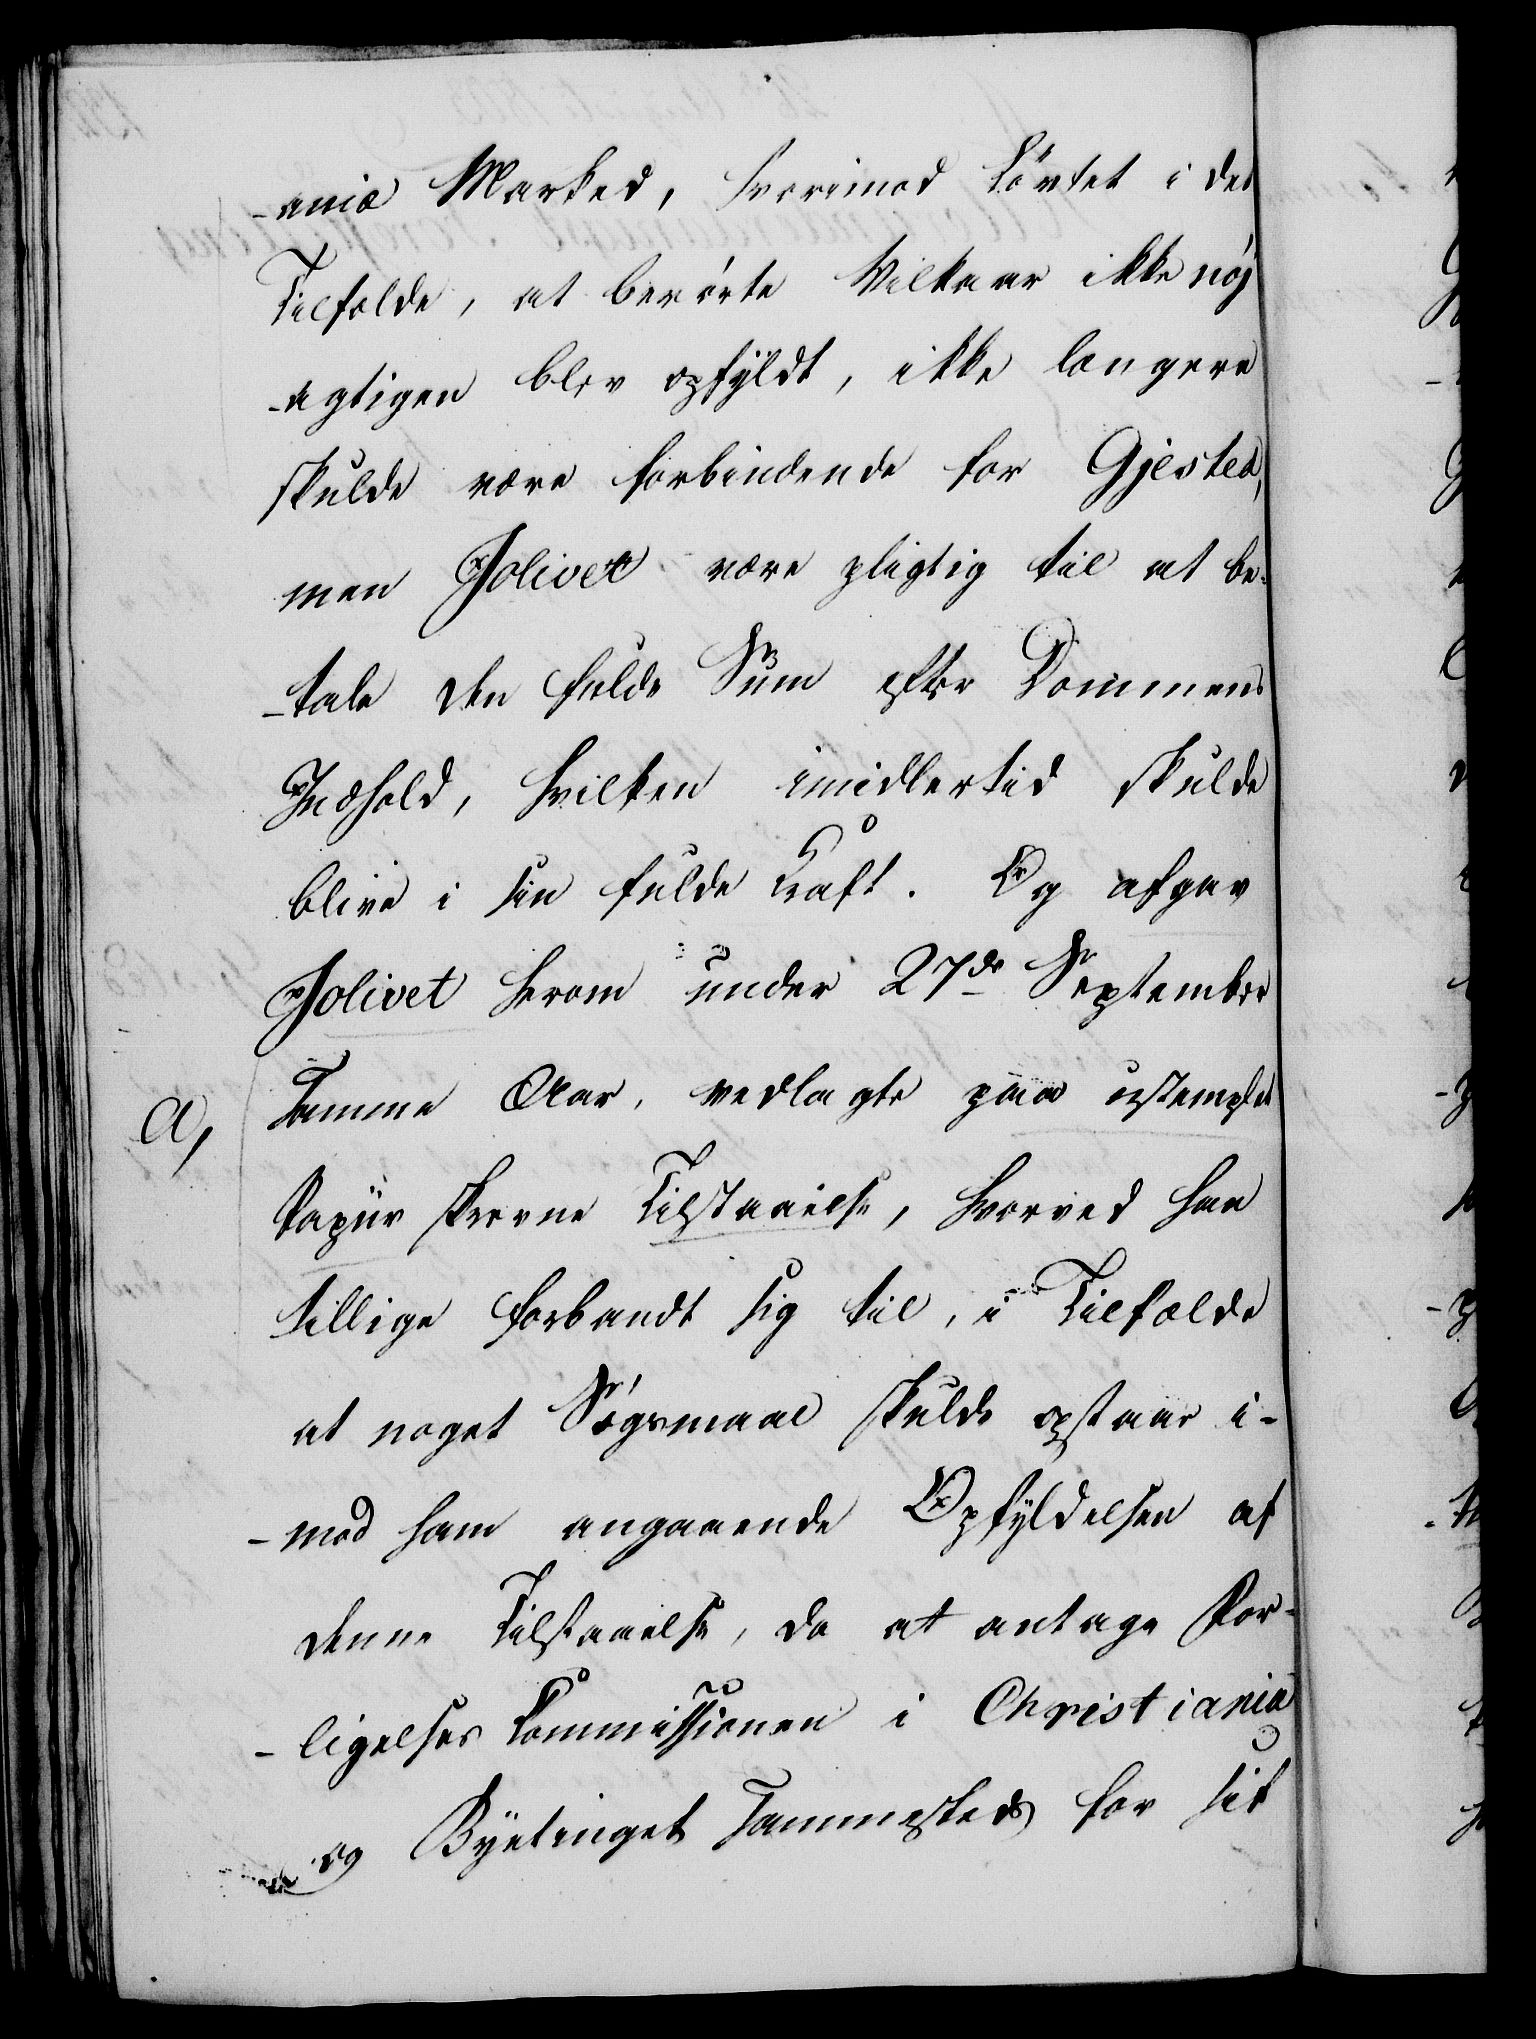 -aniæ Marked, hvorimod Løvtet i det
Tilfælde, at berørte Vilkaar ikke nøj
-agtigen blev opfyldt, ikke længere
skulde være forbindende for Gjested,
men Jolivet være pligtig til at be-
-tale den fulde Sum efter Dommens
Indhold, hvilken imidlertid skulde
blive i sin fulde Kraft. Og afgav
Jolivet herom under 27de September
a, samme Aar, vedlagte paa ustemplet
Papiir skrevne Tilstaaelse, hvorved han
tillige forbandt sig til, i Tilfælde
at noget Søgsmaal skulde opstaae i-
-mod ham angaaende Opfyldelsen af
denne Tilstaaelse, da at antage For-
-ligelses Commissionen i Christiania
og Byetinget sammesteds for sit